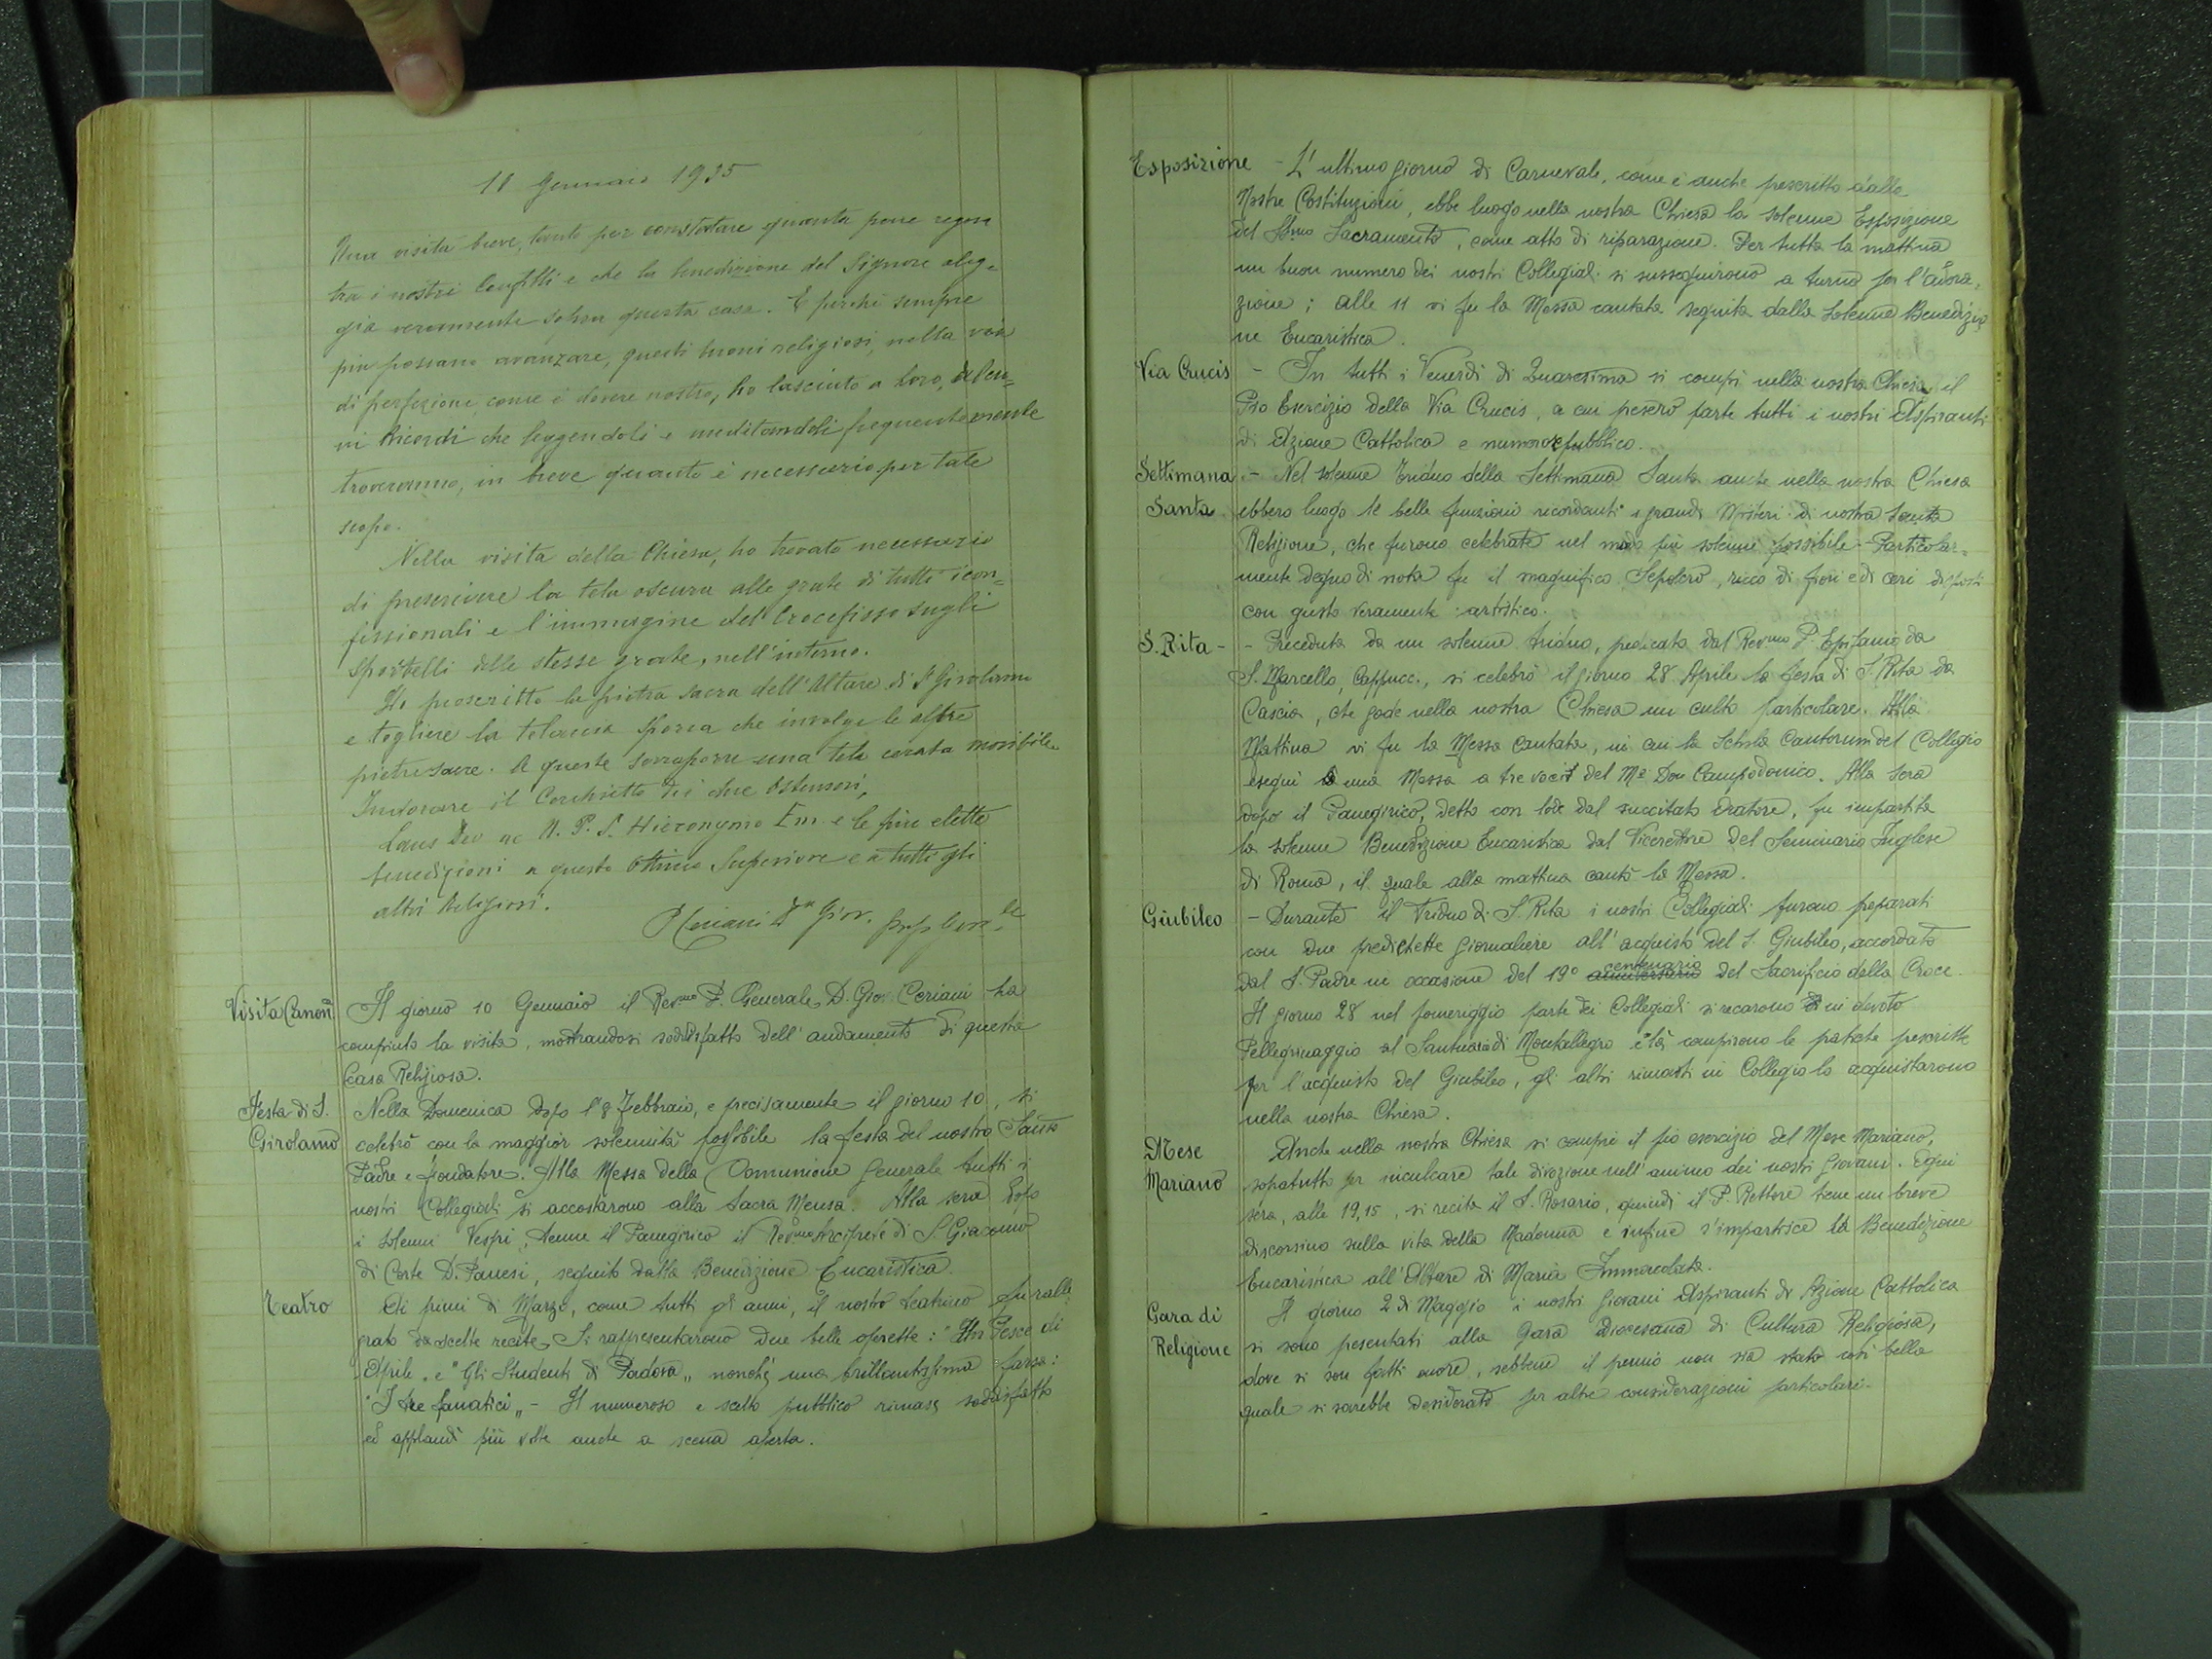 11 Gennaio 1935
Una visita breve, tanto per constatare quanta pace regna
tra i nostri Confflli e che la benedizione del Signore aleg-
gia veramente sopra questa casa. E perchè sempre
più possano avanzare, questi buoni religiosi, nella via
di perfezione, come è dovere nostro, ho lasciato a loro, alcu-
ni Ricordi che leggendoli e meditandoli frequentemente
troveranno, in breve quanto è necessario per tale
scopo.
Nella visita della Chiesa, ho trovato necessario
di prescrivere la tela oscura alle grate di tutti i con=
fessionali e l'immagine del Crocefisso sugli
sportelli delle stesse grate, nell'interno.
Ho prescritto la pietra sacra dell'Altare di S Girolamo
e togliere la telaccia sporca che involge le altre
pietre sacre. A queste sovrapporre una tela cerata movibile.
Indorare il Cerchietto dei due Ostensori,
Laus Deo ac N. P. S. Hieronymo Em. e le più elette
benedizioni a questo Ottimo Superiore e a tutti gli
altri Religiosi.
P Ceriani D Giov. Prep Gen.le
Visita Canon. Il giorno 10 Gennaio il Rev.mo P. Generale D. Giov. Ceriani ha
compiuto la visita, mostrandosi soddisfatto dell'andamento di questa
Casa Religiosa.
Festa di S. Nella Domenica dopo l'8 Febbraio, e precisamente il giorno 10, si
Girolamo celebrò con la maggior solennità possibile la festa del nostro Santo
Padre e Fondatore. Alla Messa della Comunione Generale tutti i
nostri Collegiali si accostarono alla Sacra Mensa. Alla sera dopo
i solenni Vespri, tenne il Panegirico il Rev.mo Arciprete di S. Giacomo
di Corte D. Panesi, seguito dalla Benedizione Eucaristica.
Teatro Ai primi di Marzo, come tutti gli anni, il nostro teatrino fu ralle
grato da scelte recite. Si rappresentarono due belle operette: "Un Pesce di
Aprile" e "Gli Studenti di Padova" nonchè una brillantissima farsa:
"I tre fanatici" - Il numeroso e scelto pubblico rimase soddisfatto
ed applaudì più volte anche a scena aperta.
Esposizione - L'ultimo giorno di Carnevale, come è anche prescritto dalle
Nostre Costituzioni, ebbe luogo nella nostra Chiesa la solenne Esposizione
del SS.mo Sacramento, come atto di riparazione. Per tutta la mattina
un buon numero dei nostri Collegiali si susseguirono a turno per l'adora-
zione; alle 11 vi fu la Messa cantata seguita dalla solenne Benedizio
ne Eucaristica.
Via Crucis - In tutti i Venerdì di Quaresima si compì nella nostra Chiesa il
Pio Esercizio della Via Crucis, a cui presero parte tutti i nostri Aspiranti
di Azione Cattolica e numeroso pubblico.
Settimana - Nel solenne Triduo della Settimana Santa anche nella nostra Chiesa
Santa ebbero luogo le belle funzioni ricordanti i grandi Misteri di nostra Santa
Religione, che furono celebrate nel modo più solenne possibile - Particolar-
mente degno di nota fu il magnifico Sepolcro, ricco di fiori e di ceri disposti
con gusto veramente artistico.
S. Rita - - Preceduta da un solenne triduo, predicato dal Rev.mo P. Epifanio da
S. Marcello, Cappucc., si celebrò il giorno 28 Aprile la festa di S. Rita da
Cascia, che gode nella nostra Chiesa un culto particolare. Alla
Mattina vi fu la Messa Cantata, in cui la Schola Cantorum del Collegio
eseguì una Messa a tre voci del M° Don Campodonico. Alla sera
dopo il Panegirico, detto con lode dal succitato Oratore, fu impartita
la solenne Benedizione Eucaristica dal Vicerettore del Seminario Inglese
di Roma, il quale alla mattina cantò la Messa.
Giubileo - Durante il Triduo di S. Rita i nostri Collegiali furono preparati
con due predichette giornaliere all'acquisto del S. Giubileo, accordato
dal S. Padre in occasione del 19° anniversario centenario del Sacrificio della Croce.
Il giorno 28 nel pomeriggio parte dei Collegiali si recarono in devoto
Pellegrinaggio al Santuario di Montallegro e là compirono le pratiche prescritte
per l'acquisto del Giubileo, gli altri rimasti in Collegio lo acquistarono
nella nostra Chiesa.
Mese Anche nella nostra Chiesa si compie il pio esercizio del Mese Mariano,
Mariano sopratutto per inculcare tale divozione nell'animo dei nostri Giovani. Ogni
sera, alle 19,15, si recita il S. Rosario, quindi il P. Rettore tiene un breve
discorsino sulla vita della Madonna e infine s'impartisce la Benedizione
Eucaristica all'Altare di Maria Immacolata.
Gara di Il giorno 2 di Maggio i nostri Giovani Aspiranti di Azione Cattolica
Religione si sono presentati alla Gara Diocesana di Cultura Religiosa,
dove si son fatti onore, sebbene il premio non sia stato così bello
quale si sarebbe desiderato per altre considerazioni particolari.